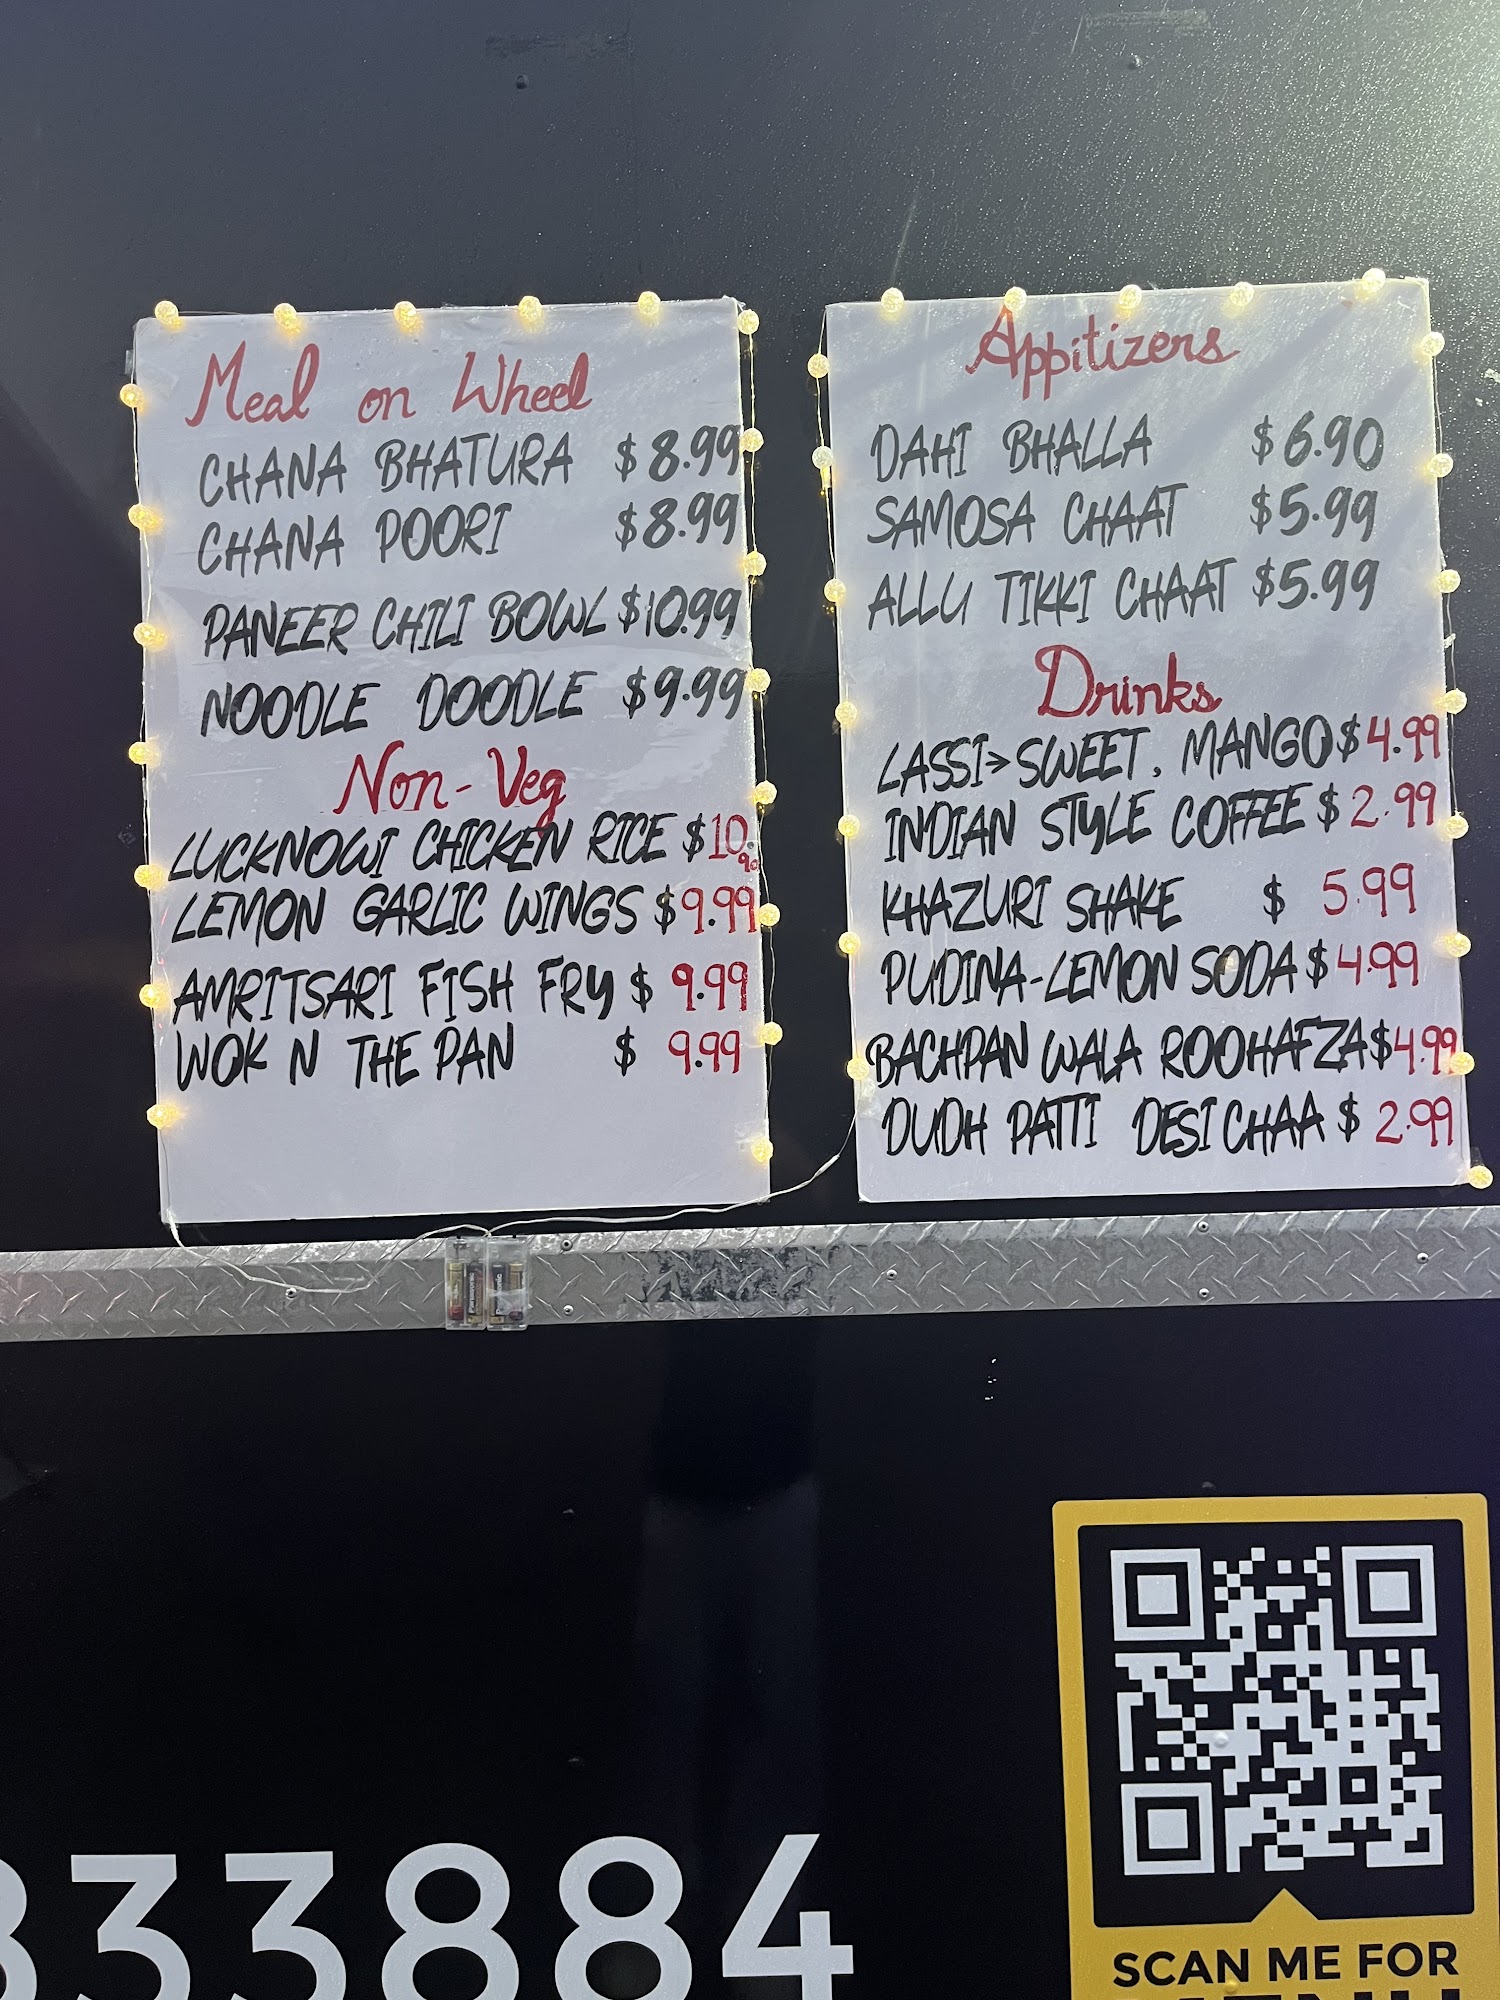 Meal on Wheel
CHANA BHATURA $8.99
CHANA POORI $8.99
PANEER CHILI BOWL $10.99
NOODLE DOODLE $9.99
Non-Veg
LUCKNOWI CHICKEN RICE $10.90
LEMON GARLIC WINGS $9.99
AMRITSARI FISH FRY $ 9.99
WOK N THE PAN $ 9.99
Appitizers
DAHI BHALLA $6.90
SAMOSA CHAAT $5.99
ALLU TIKKI CHAAT $5.99
Drinks
LASSI→SWEET, MANGO $4.99
INDIAN STYLE COFFEE $2.99
KHAZURI SHAKE $ 5.99
PUDINA-LEMON SODA $4.99
BACHPAN WALA ROOHAFZA $4.99
DUDH PATTI DESI CHAA $ 2.99
Panasonic
Panasonic
33884
SCAN ME FOR
MENU